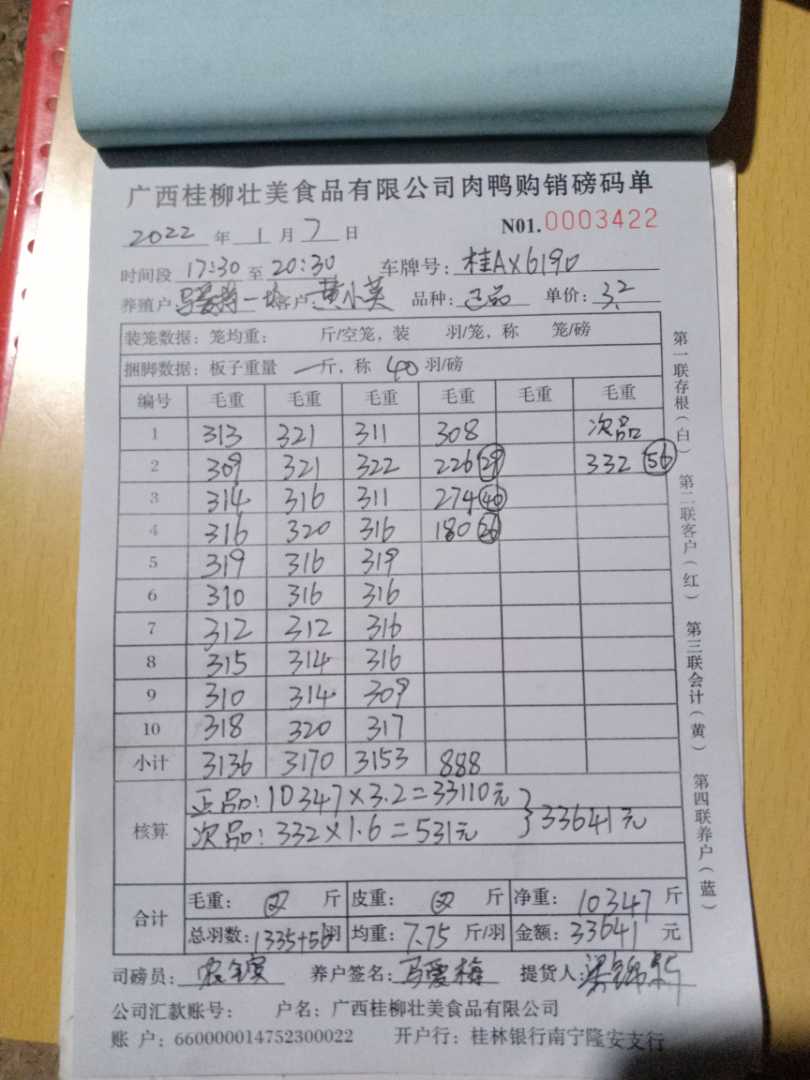 广西桂柳壮美食品有限公司肉鸭购销磅码单
N01.0003422
2022 年 1 月 7 日
时间段 17:30 至 20:30 车牌号: 桂AX6190
养殖户: 客户: 黄小英 品种: 正品 单价: 3.2
装笼数据: 笼均重: 斤/空笼, 装 羽/笼, 称 笼/磅
捆脚数据: 板子重量 一斤, 称 40 羽/磅
编号 毛重 毛重 毛重 毛重 毛重 毛重
1 313 321 311 308 次品
2 309 321 322 226 29 332 56
3 314 316 311 274 40
4 316 320 316 180 26
5 319 316 319
6 310 316 316
7 312 312 316
8 315 314 316
9 310 314 309
10 318 320 317
小计 3136 3170 3153 888
核算 正品: 10347×3.2=33110元
次品: 332×1.6=531元 }33641元
合计 毛重: 斤 皮重: 斤 净重: 10347 斤
总羽数: 1335+56羽 均重: 7.75 斤/羽 金额: 33641 元
司磅员: 养户签名: 马爱梅 提货人:
公司汇款账号: 户名: 广西桂柳壮美食品有限公司
账 户: 660000014752300022 开户行: 桂林银行南宁隆安支行
第一联存根(白) 第二联客户(红) 第三联会计(黄) 第四联养户(蓝)